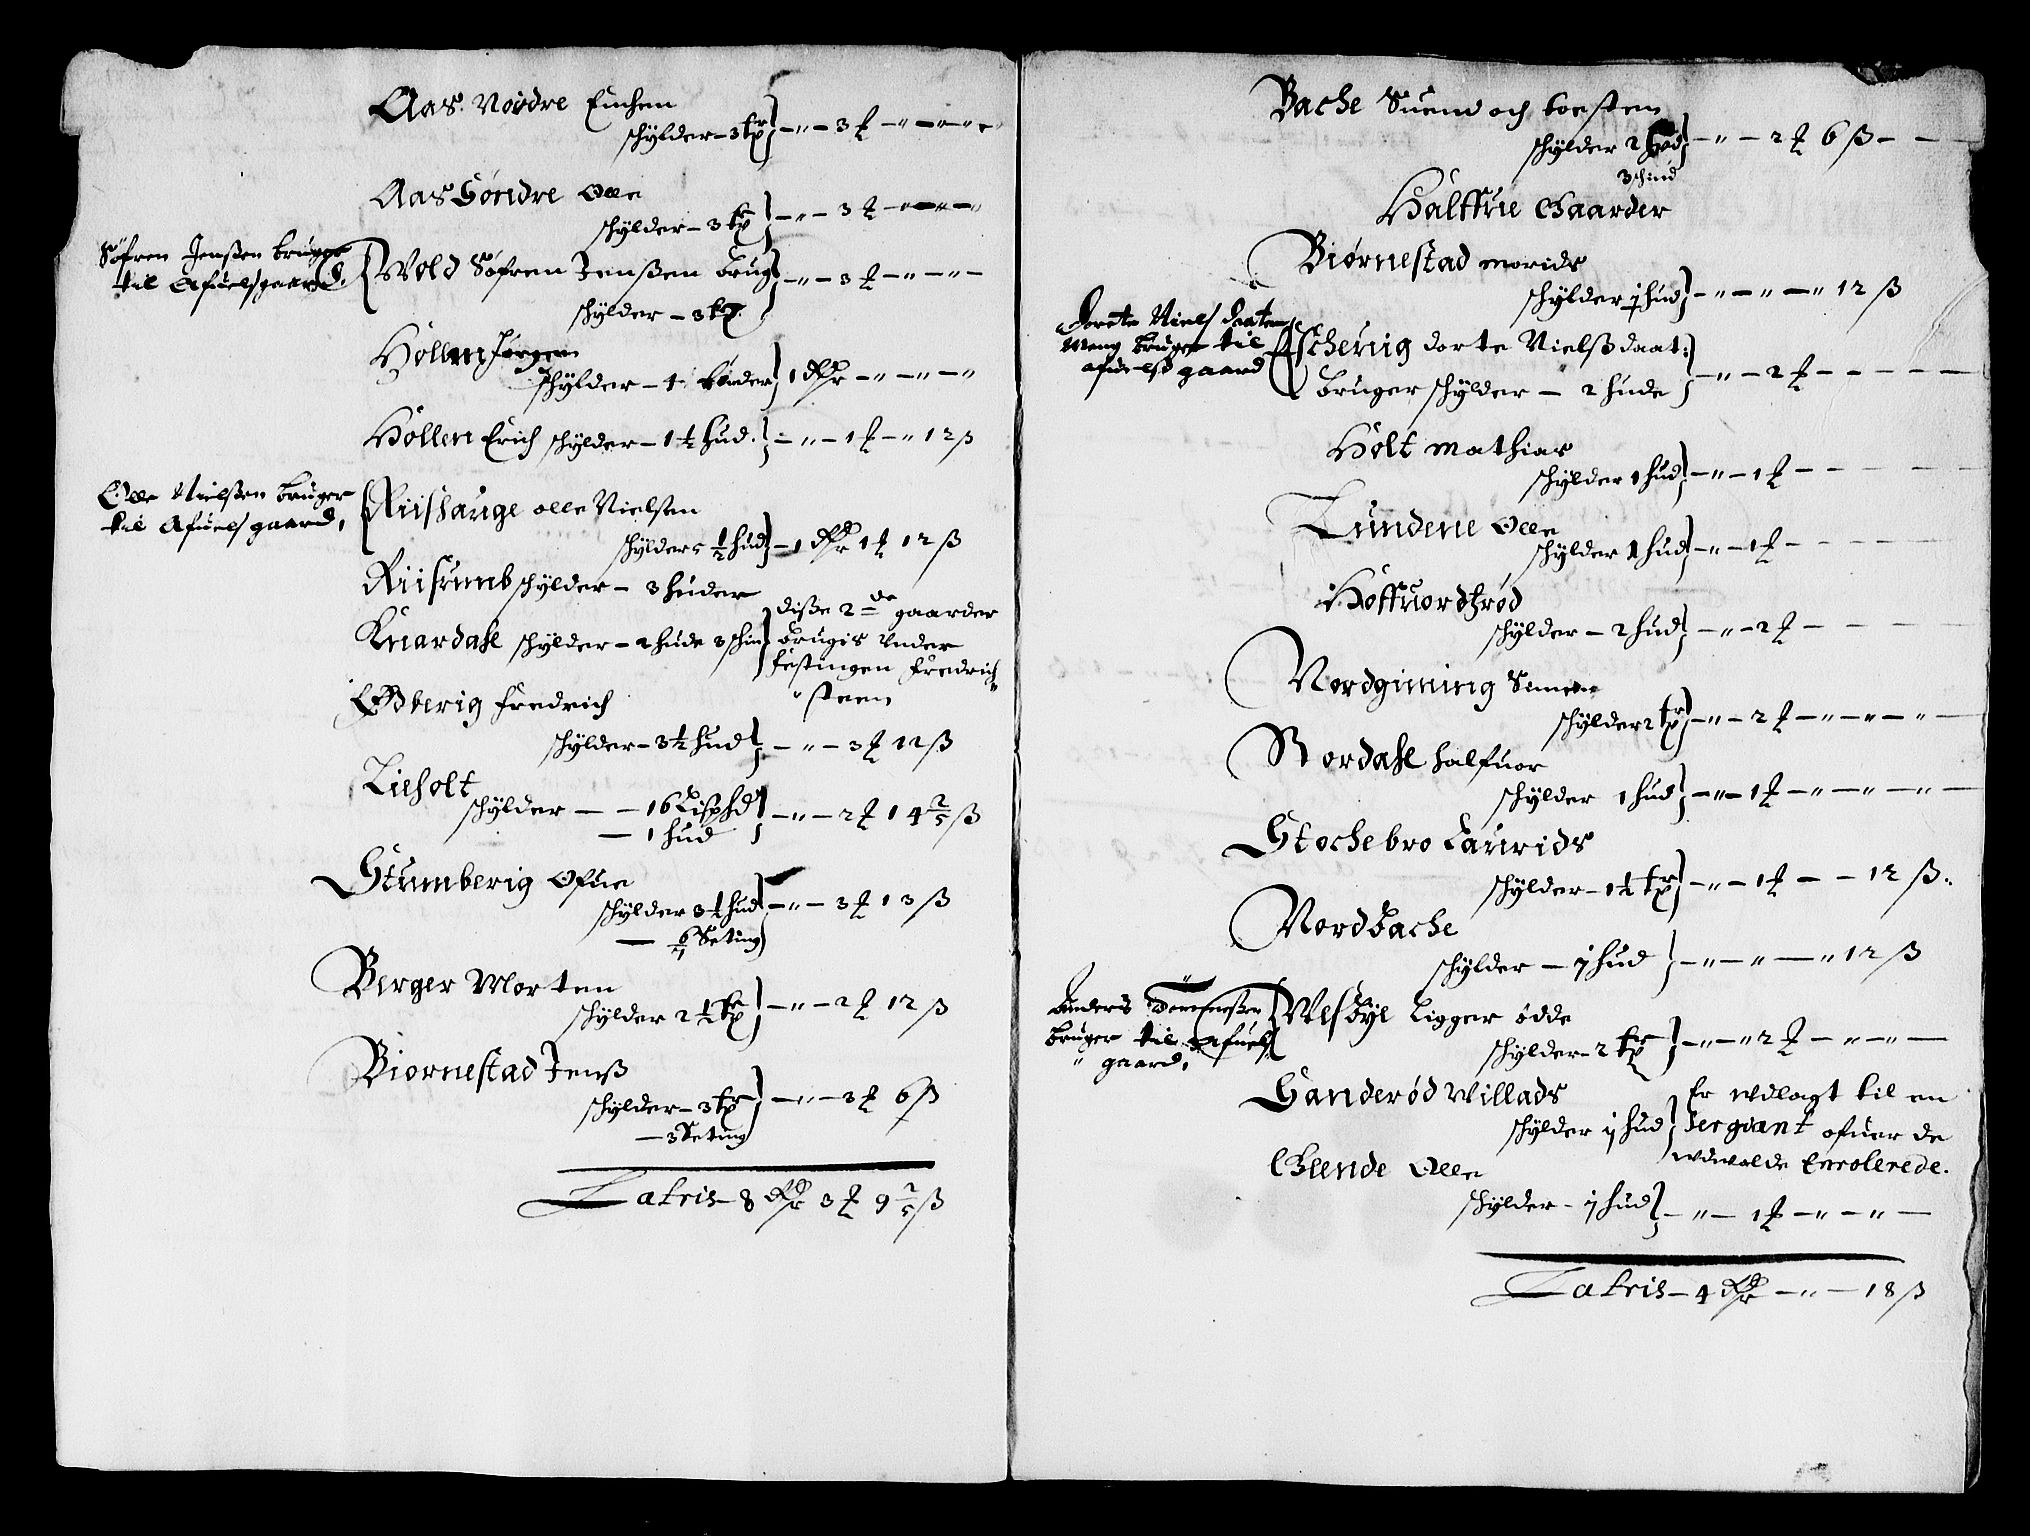 Aas Nordre Enchen
schylder – 3 tr } – „ – 3 ʠ – „ – „ –
Aas Søndre Olle
schylder – 3 tr } – „ – 3 ʠ – „ – „
Søfren Jenßen bruger
til Afuelsgaard.
Wold Søfren Jenßen brug
schylder – 3 tr. } – „ – 3 ʠ – „ – „ –
Hollen Jørgen
schylder – 4 hüder } 1 Rdr – „ – „ – „
Hollen Erich schylder – 1½ hud. } – „ – 1 ʠ – „ 12 ß
Olle Nielßen bruger
til Afuels gaard,
Riishauge olle Nielsen
schylder 5 ½ hud } – 1 Rdr 1 ʠ 12 ß
Riisumb schylder – 3 huder
Knardahl schylder – 2 hude 3 schin }
diße 2de gaarder
brugis under
festingen Fredrich
„ steen
Berig Fredrich
schylder – 3½ hud } – „ – 3 ʠ 12 ß
Lieholt
schylder – – 16 Lispd
– 1 hud } – „ – 2 ʠ 14 2/5 ß
Stumberig Ofue
schylder 3½ hud } – „ – 3 ʠ 13 ß
– 6 Seting
Berger Morten
schylder 2½ tr } – „ – 2 ʠ 12 ß
Biornestad Jenß
schylder – 3 tr } – „ – 3 ʠ 6 ß
– 3 Seting
Latris – 8 Rdr 3 ʠ 9 2/5 ß
Bache Suend och torsten
schylder 2 hud } – „ – 2 ʠ 6 ß –
3 schind
Halffue Gaarder
Biørnestad morids
schylder ½ hud } – „ – „ – „ 12 ß
Dorete Niels daater
bruger til
afuelß gaard
Escheriig dorte Nielß daat:
bruger schylder – 2 hude } – „ – 2 ʠ – – – –
Holt mathias
schylder 1 hud } – „ – 1 ʠ – – –
Lundene Olle
schylder 1 hud } – „ – 1 ʠ – – –
Hoffuordtzrød
schylder – 2 hud } – „ – 2 ʠ – – –
Nordgiming Simen
schylder 2 tr } – „ – 2 ʠ – „ – „ – „ –
Nordahl halfuor
schylder 1 hud } – „ – 1 ʠ – „ – „ – „ –
Stochebro Laurids
schylder – 1½ tr } – „ – 1 ʠ – – 12 ß.
Nordbache
schylder – ½ hud } – „ – „ – „ 12 ß
Anders
bruger til Afuels
„ gaard,
Wlsbyl Ligger ødde
schylder – 2 tr } – „ – „ 2 ʠ – „ – „ –
Sanderød Willads
schylder ij hud }
Er udlagt til en
Sergiant ofuer de
udualde Enrolerede.
Glende Olle
schylder – ij hud } – „ – 1 ʠ – „ – „ –
Latris – 4 Rdr – „ – 18 ß